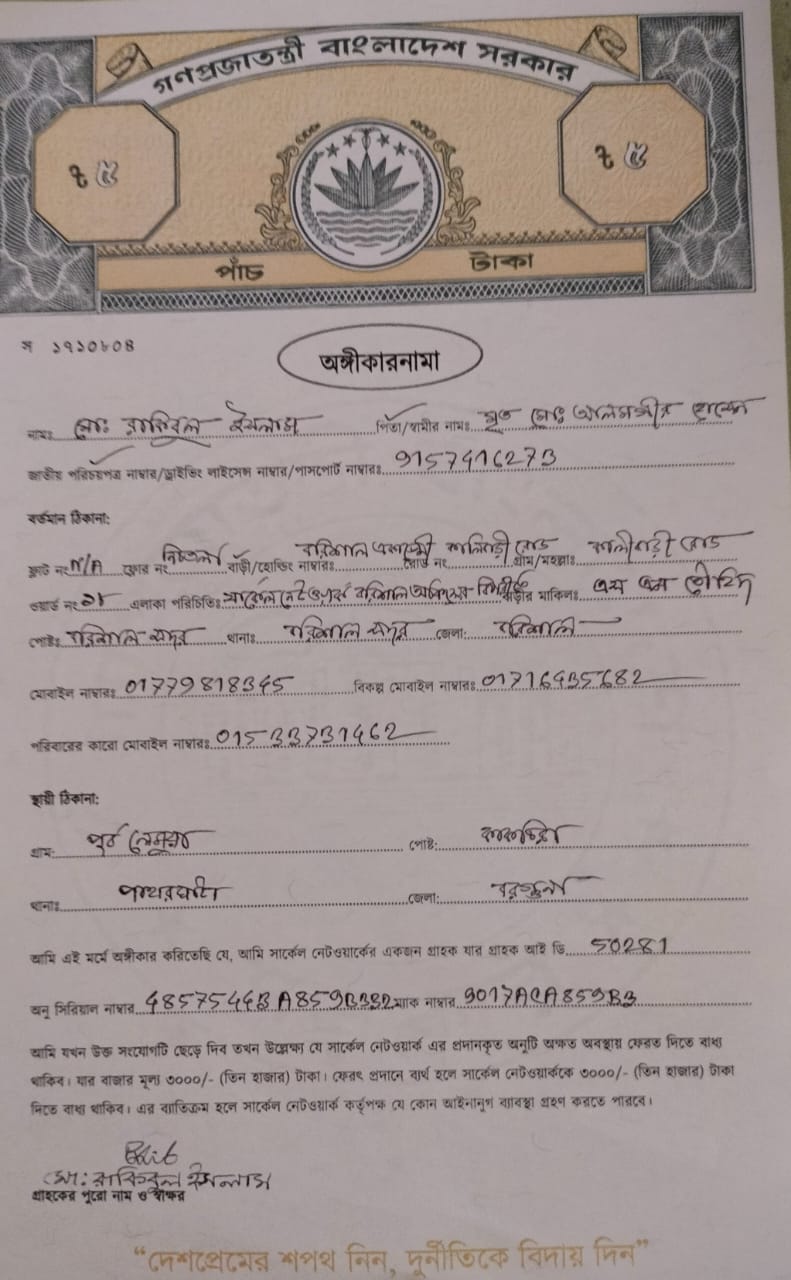 গণপ্রজাতন্ত্রী বাংলাদেশ সরকার
৳ ৫ ৳ ৫
পাঁচ টাকা
স ১৭১০৮০৪
অঙ্গীকারনামা
নামঃ মোঃ রাকিবুল ইসলাম পিতা/স্বামীর নামঃ মৃত মোঃ আলমগীর হোসেন
জাতীয় পরিচয়পত্র নাম্বার/ড্রাইভিং লাইসেন্স নাম্বার/পাসপোর্ট নাম্বারঃ 9157416273
বর্তমান ঠিকানা:
ফ্লাট নং N/A ফ্লোর নং নিচতলা বাড়ী/হোল্ডিং নাম্বারঃ বরিশাল একাডেমী রোড নং কালিবাড়ী রোড গ্রাম/মহল্লাঃ কালীবাড়ী রোড
ওয়ার্ড নং এলাকা পরিচিতিঃ সার্কেল নেটওয়ার্ক বরিশাল অফিসের বিপরীতে বাড়ীর মালিকঃ এস এম তৌহিদ
পোষ্টঃ বরিশাল সদর থানাঃ বরিশাল সদর জেলা: বরিশাল
মোবাইল নাম্বারঃ 01779818345 বিকল্প মোবাইল নাম্বারঃ 01716435682
পরিবারের কারো মোবাইল নাম্বারঃ 01533731462
স্থায়ী ঠিকানা:
গ্রাম: পূর্ব পোষ্ট: কাকচিড়া
থানাঃ পাথরঘাটা জেলা: বরগুনা
আমি এই মর্মে অঙ্গীকার করিতেছি যে, আমি সার্কেল নেটওয়ার্কের একজন গ্রাহক যার গ্রাহক আই ডি 50281
অনু সিরিয়াল নাম্বার 48575443A859B3B2 ম্যাক নাম্বার 9017ACA859B3
আমি যখন উক্ত সংযোগটি ছেড়ে দিব তখন উল্লেক্ষ্য যে সার্কেল নেটওয়ার্ক এর প্রদানকৃত অনুটি অক্ষত অবস্থায় ফেরত দিতে বাধ্য
থাকিব। যার বাজার মূল্য ৩০০০/- (তিন হাজার) টাকা। ফেরৎ প্রদানে ব্যর্থ হলে সার্কেল নেটওয়ার্ককে ৩০০০/- (তিন হাজার) টাকা
দিতে বাধ্য থাকিব। এর ব্যতিক্রম হলে সার্কেল নেটওয়ার্ক কর্তৃপক্ষ যে কোন আইনানুগ ব্যাবস্থা গ্রহণ করতে পারবে।
মো: রাকিবুল ইসলাম
গ্রাহকের পুরো নাম ও স্বাক্ষর
“দেশপ্রেমের শপথ নিন, দুর্নীতিকে বিদায় দিন”